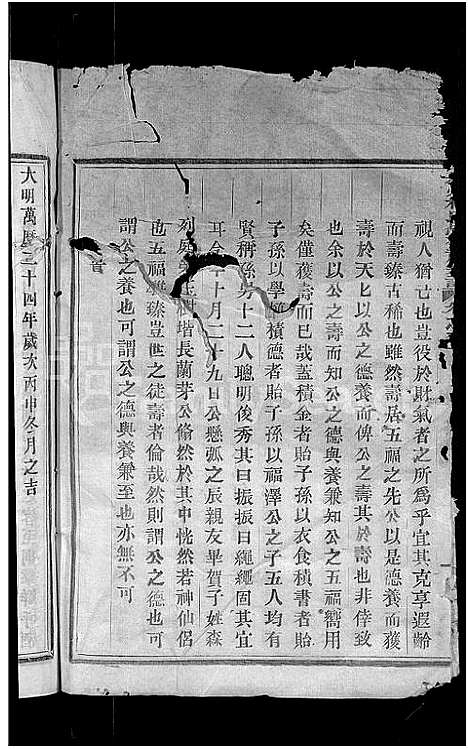 視人猶亡也豈役於財氣者之所為乎宜其克享遐齡
而壽臻古稀也雖然壽居五福之先公以是德養而獲
壽於天乜以公之德養而俾公之壽其於壽也非倖致
也余以公之壽而知公之德與養兼知公之五福嚮用
矣僅獲壽而已哉蓋積金者貽子孫以衣食積書者貽
子孫以學積德者貽子孫以福澤公之子五人均有
賢稱孫男十二人聰明俊秀其曰振振曰繩繩固其宜
耳今年十月二十九日公懸弧之辰親友畢賀子姓森
列庭玉樹堦長蘭芽公翛然於其中恍然若神仙侶
也五福臻豈世之徒壽者倫哉然則謂公之德也可
謂公之養也可謂公之德與養兼至也亦無不可
大明萬曆二十四年歲次丙申冬月之吉